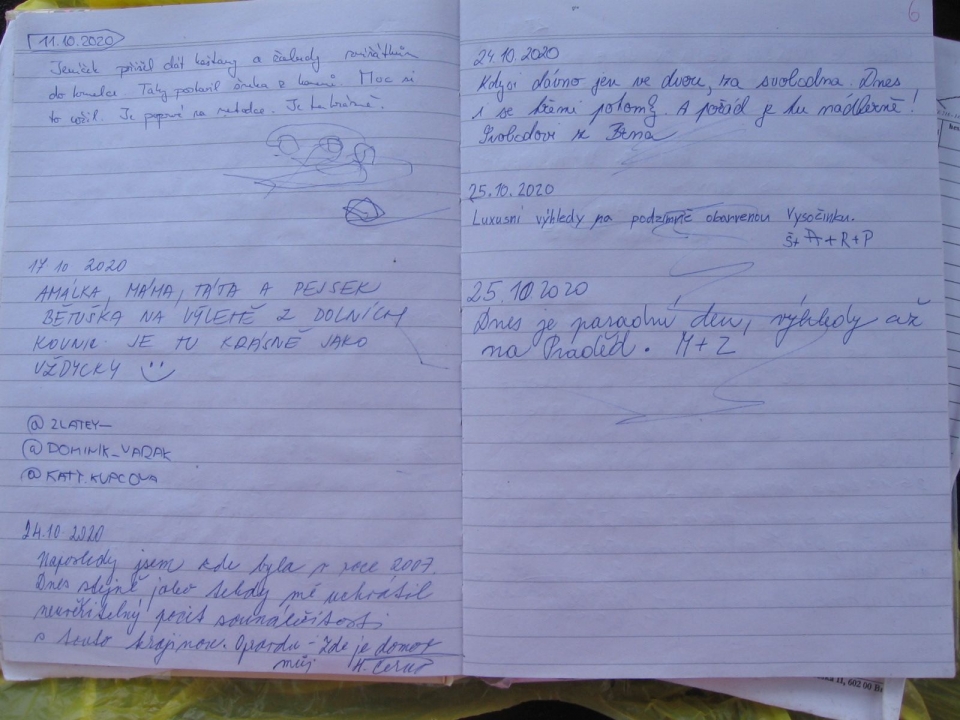 11.10.2020
Jeníček přišel dát kaštany a žaludy zvířátkům
do krmelce. Taky postavil z kamínů. Moc si
to užil. Je poprvé na rozhledně. Je tu krásně.
17.10 2020
AMÁLKA, MÁMA, TÁTA A PEJSEK
BĚTUŠKA NA VÝLETĚ Z DOLNÍCH
KOUNIC. JE TU KRÁSNĚ JAKO
VŽDYCKY
@ZLATEY_
@DOMINIK_VAŘÁK
@KATT.KUPCOVA
24.10 2020
Naposledy jsem zde byla v roce 2007.
Dnes stejně jako tehdy mě uchvátil
neuvěřitelný pocit sounáležitosti
s touto krajinou. Opravdu - Zde je domov
můj H. Černá
6
24.10.2020
Kdysi dávno jen ve dvou, za svobodna. Dnes
i se třemi potomky. A pořád je tu nádherně!
Svobodovi z Brna
25.10.2020
Luxusní výhledy na podzimně obarvenou Vysočinku.
Š+A+R+P
25.10 2020
Dnes je parádní den, výhledy až
na Praděd. M+Z
602 00 B